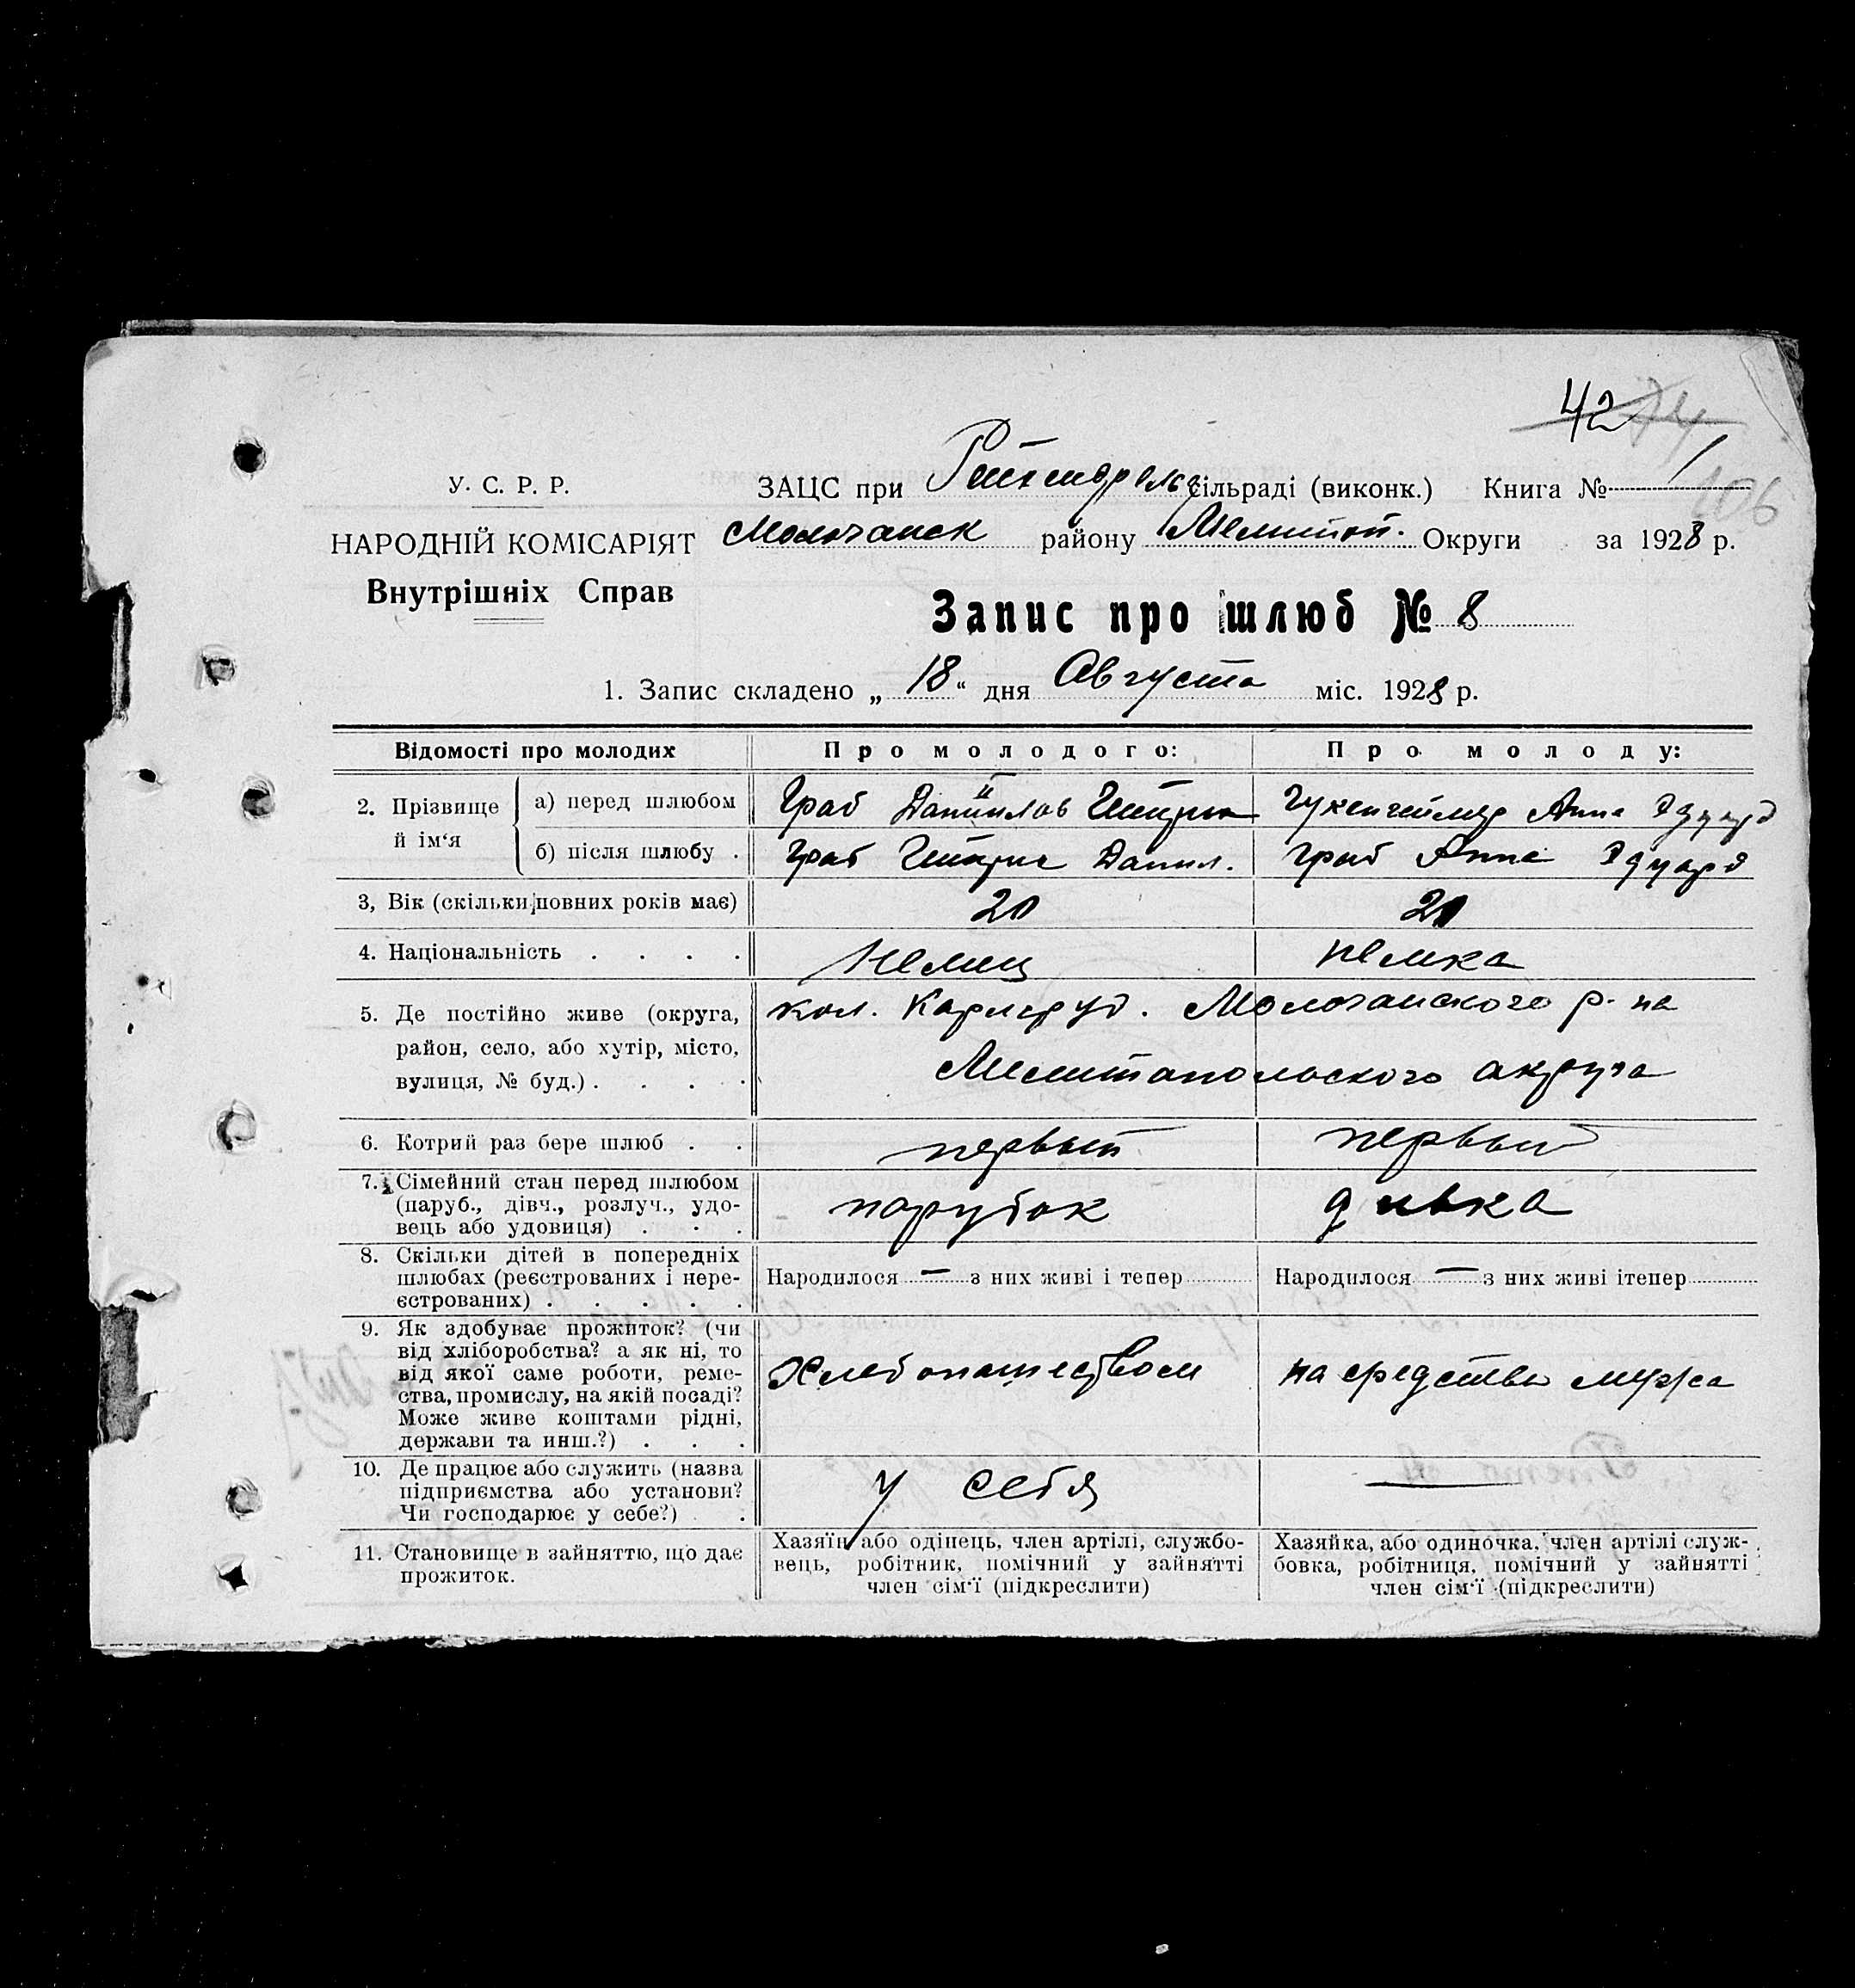 42
1
106
У. С. Р. Р.
ЗАЦС при сільраді (виконк.) Книга №
НАРОДНІЙ КОМІСАРІЯТ
Молочанск району Мелитоп. Округи за 1928 р.
Внутрішніх Справ
Запис про шлюб № 8
1. Запис складено „ 18 “ дня Августа міс. 1928 р.
Відомості про молодих
Про молодого:
Про молоду:
2. Прізвище й ім‘я
а) перед шлюбом
Граб Данилов
Анна Эдуард
б) після шлюбу .
Граб Данил.
Граб Анна Эдуард
3, Вік (скільки повних років має)
20
20
4. Національність . . . .
Немец
немка
5. Де постійно живе (округа,
район, село, або хутір, місто,
вулиця, № буд.) . . . .
кол. Карлсруэ. Молочанского р-на
Мелитопольского округа
6. Котрий раз бере шлюб . .
первый
первый
7. Сімейний стан перед шлюбом
(паруб., дівч., розлуч., удо-
вець або удовиця) . . .
парубок
дивка
8. Скільки дітей в попередніх
шлюбах (реєстрованих і нере-
єстрованих) . . . . .
Народилося — з них живі і тепер
Народилося — з них живі ітепер
9. Як здобуває прожиток? (чи
від хліборобства? а як ні, то
від якої саме роботи, реме-
ства, промислу, на якій посаді?
Може живе коштами рідні,
держави та инш.?) . . .
Хлебопашеством
на средства мужа
10. Де працює або служить (назва
підприємства або установи?
Чи господарює у себе?) .
у себя
—
11. Становище в зайняттю, що дає
прожиток.
Хазяїн або одінець, член артілі, службо-
вець, робітник, помічний у зайнятті
член сім‘ї (підкреслити)
Хазяйка, або одиночка, член артілі служ-
бовка, робітниця, помічний у зайнятті
член сім‘ї (підкреслити)